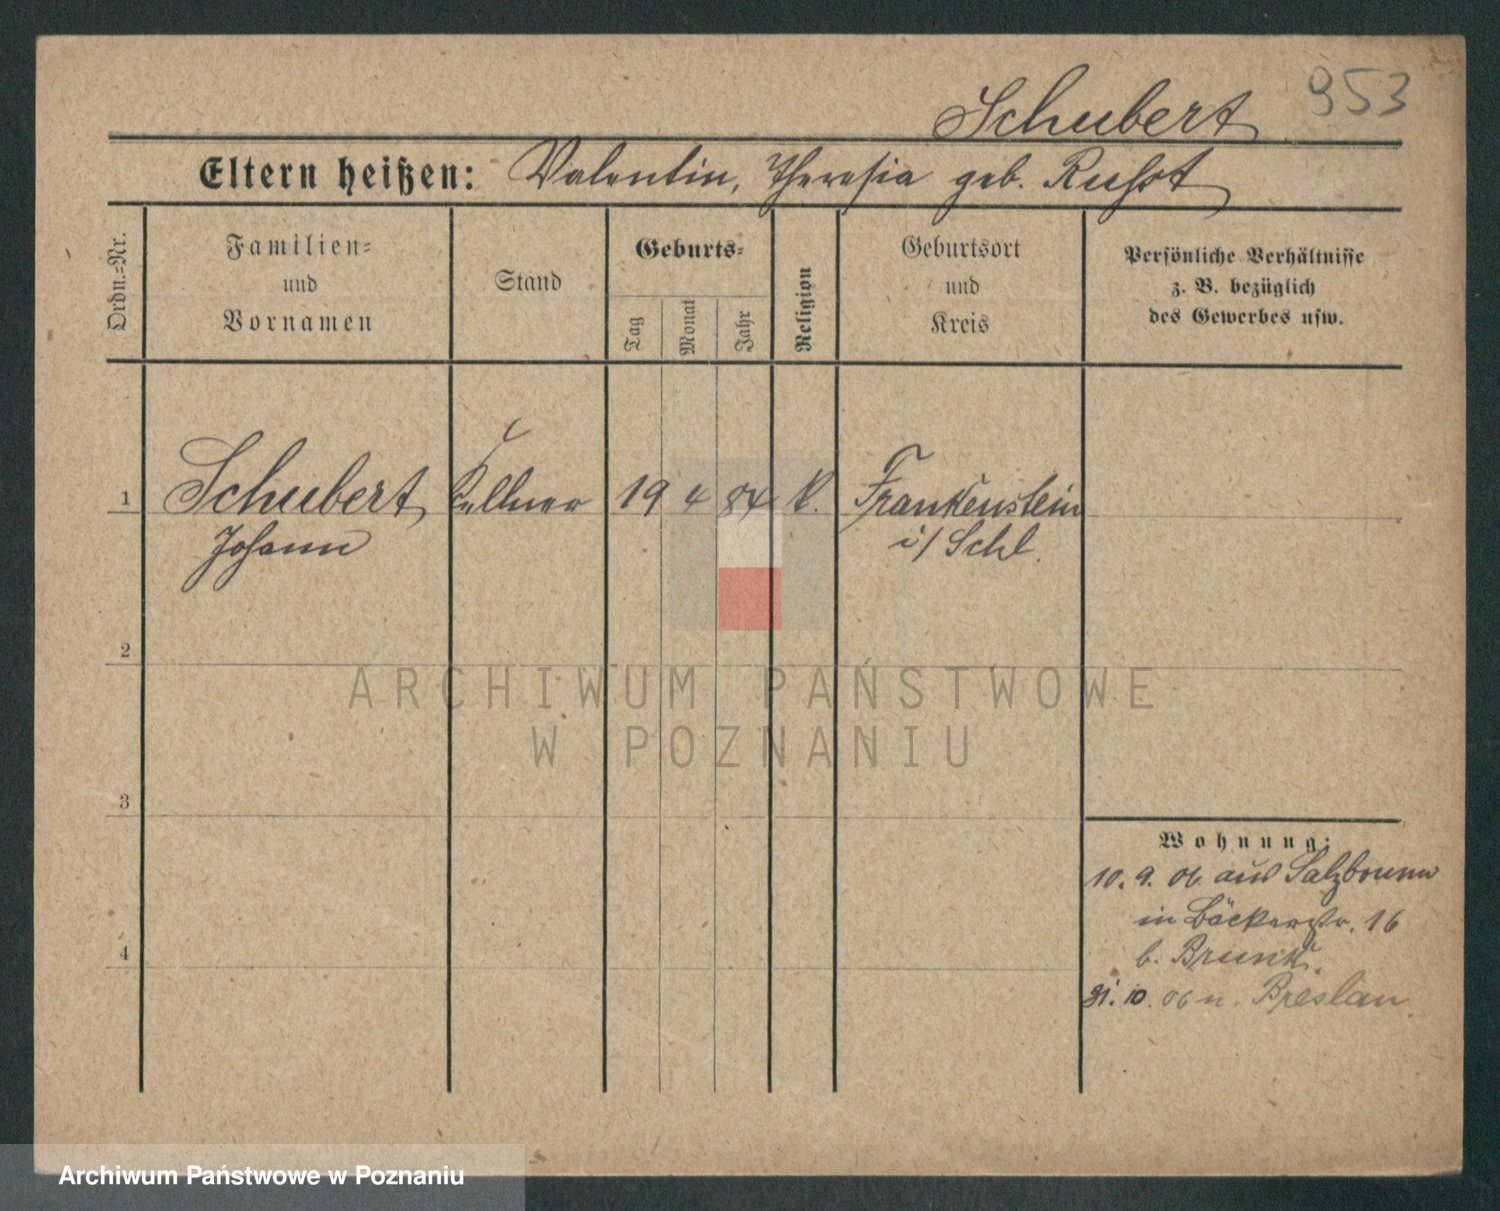 Schubert 953
Eltern heißen: Valentin, Theresia geb.
Ordn.=Nr.
Familien=
und
Vornamen
Stand
Geburts=
Tag
Monat
Jahr
Religion
Geburtsort
und
Kreis
Persönliche Verhältnisse
z. B. bezüglich
des Gewerbes usw.
1 Schubert Kellner 19 4 84 k. Frankenstein
Johann i/Schl.
2
ARCHIWUM PAŃSTWOWE
W POZNANIU
3
Wohnung:
10. 9. 06 aus Salzbrunn
in Bäckerstr. 16
4
b. Brunk.
31. 10. 06 n. Breslau
Archiwum Państwowe w Poznaniu